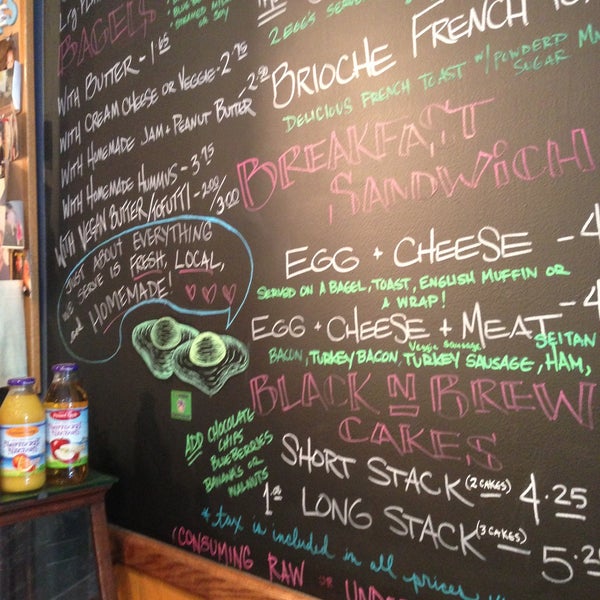 BAGELS
OR SOY
WITH BUTTER - 1.65
WITH CREAM CHEESE OR VEGGIE - 2.75
WITH HOMEMADE JAM + PEANUT BUTTER - 2.50
WITH HOMEMADE HUMMUS - 3.75
WITH VEGAN BUTTER/TOFUTTI - 2.00/3.00
JUST ABOUT EVERYTHING
WE SERVE IS FRESH, LOCAL,
and HOMEMADE!
2 EGGS SERVE
BRIOCHE FRENCH TO
DELICIOUS FRENCH TOAST W/ POWDERD
SUGAR
BREAKFAST
SANDWICH
EGG + CHEESE - 4
SERVED ON A BAGEL, TOAST, ENGLISH MUFFIN OR
A WRAP!
EGG + CHEESE + MEAT - 4
Veggie Sausage SEITAN
BACON, TURKEY BACON, TURKEY SAUSAGE, HAM,
BLACK N BREW
CAKES
ADD CHOCOLATE
CHIPS
BLUEBERRIES
BANANA'S OR
WALNUTS
1.00
SHORT STACK (2 CAKES) - 4.25
LONG STACK (3 CAKES) - 5.25
* tax is included in all prices
(CONSUMING RAW OR UNDE